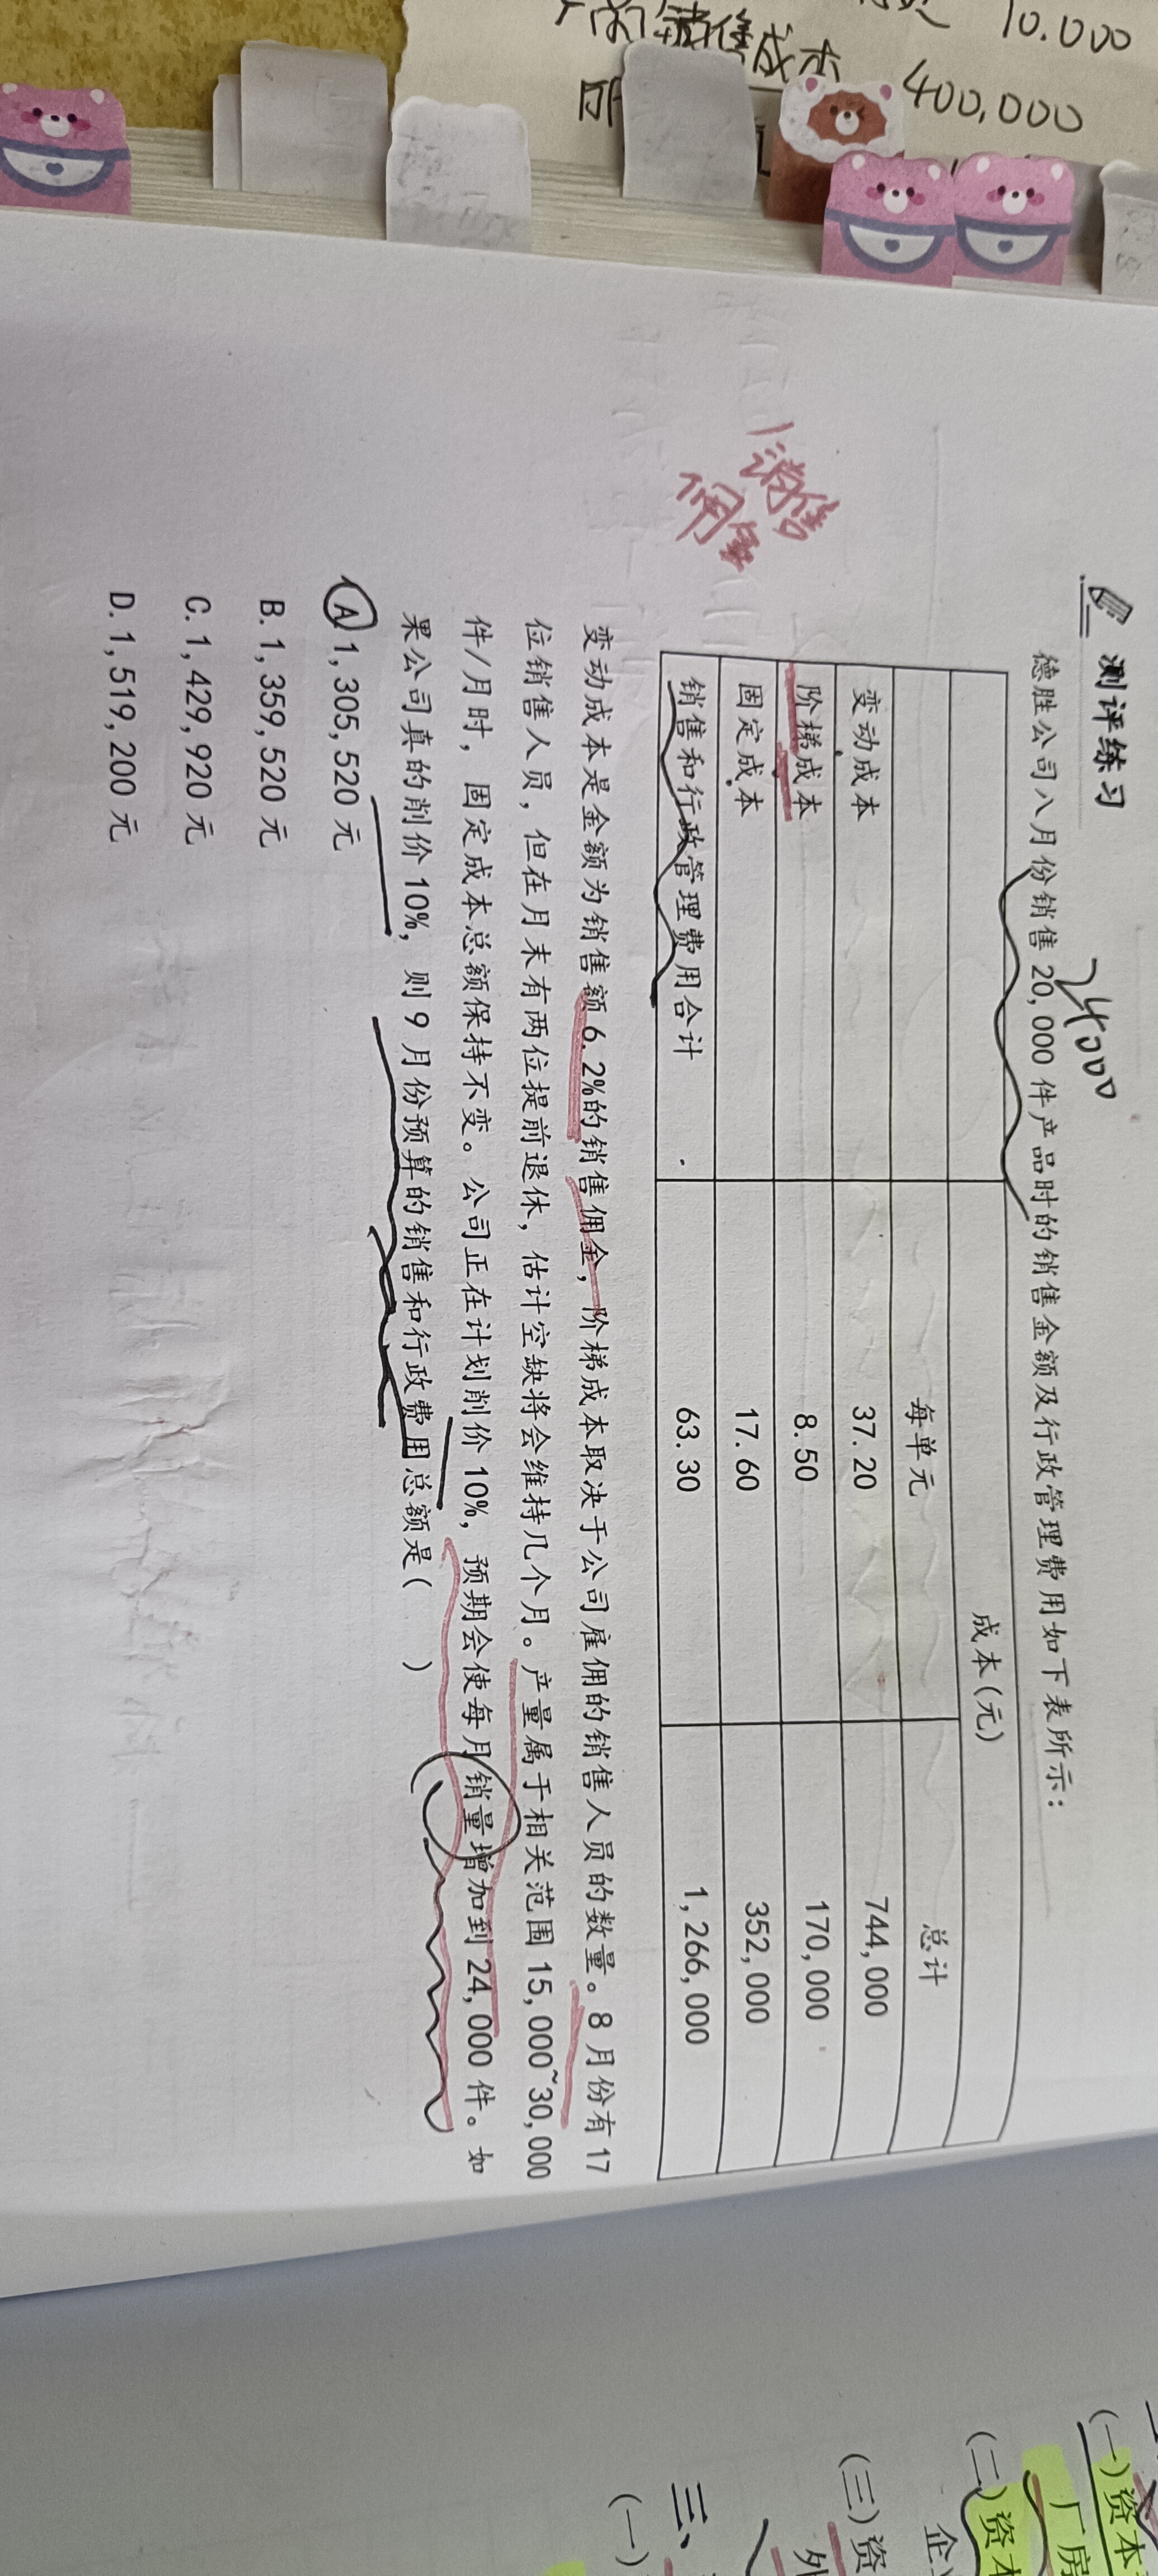 10.000
销售成本 400,000
测评练习
24000
德胜公司八月份销售20,000件产品时的销售金额及行政管理费用如下表所示：
成本(元)
每单元 总计
变动成本 37.20 744,000
阶梯成本 8.50 170,000
固定成本 17.60 352,000
销售和行政管理费用合计 63.30 1,266,000
销售
佣金
变动成本是金额为销售额6.2%的销售佣金，阶梯成本取决于公司雇佣的销售人员的数量。8月份有17
位销售人员，但在月末有两位提前退休，估计空缺将会维持几个月。产量属于相关范围15,000~30,000
件/月时，固定成本总额保持不变。公司正在计划削价10%，预期会使每月销量增加到24,000件。如
果公司真的削价10%，则9月份预算的销售和行政费用总额是( )
A 1,305,520元
B.1,359,520元
C.1,429,920元
D.1,519,200元
(一)资本
厂房
(二)资本
企业
(三)资
外
三、
(一)